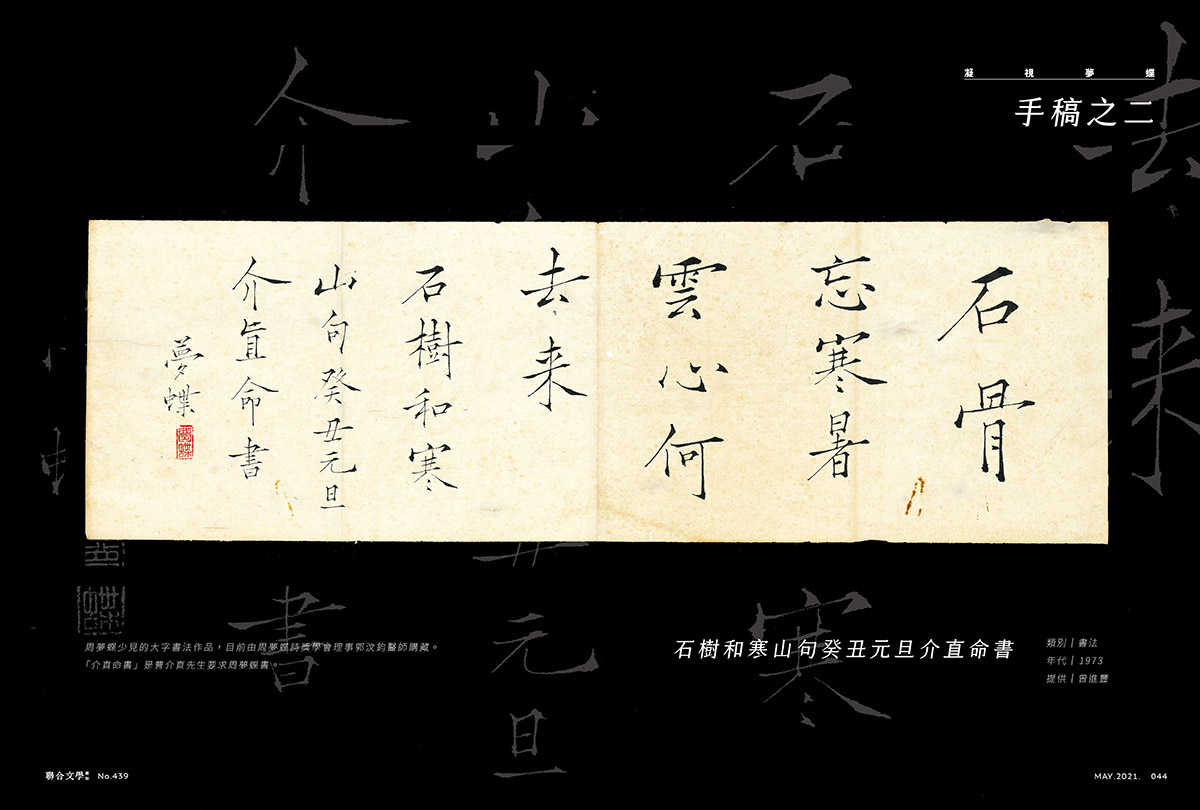 凝視夢蝶
手稿之二
石骨
忘寒暑
雲心何
去来
石樹和寒
山句癸丑元旦
介直命書
夢蝶
夢蝶
石樹和寒山句癸丑元旦介直命書
類別｜書法
年代｜1973
提供｜曾進豐
周夢蝶少見的大字書法作品，目前由周夢蝶詩獎學會理事郭汶鈞醫師購藏。
「介直命書」是曹介直先生要求周夢蝶書。
聯合文學 No.439
MAY.2021. 044